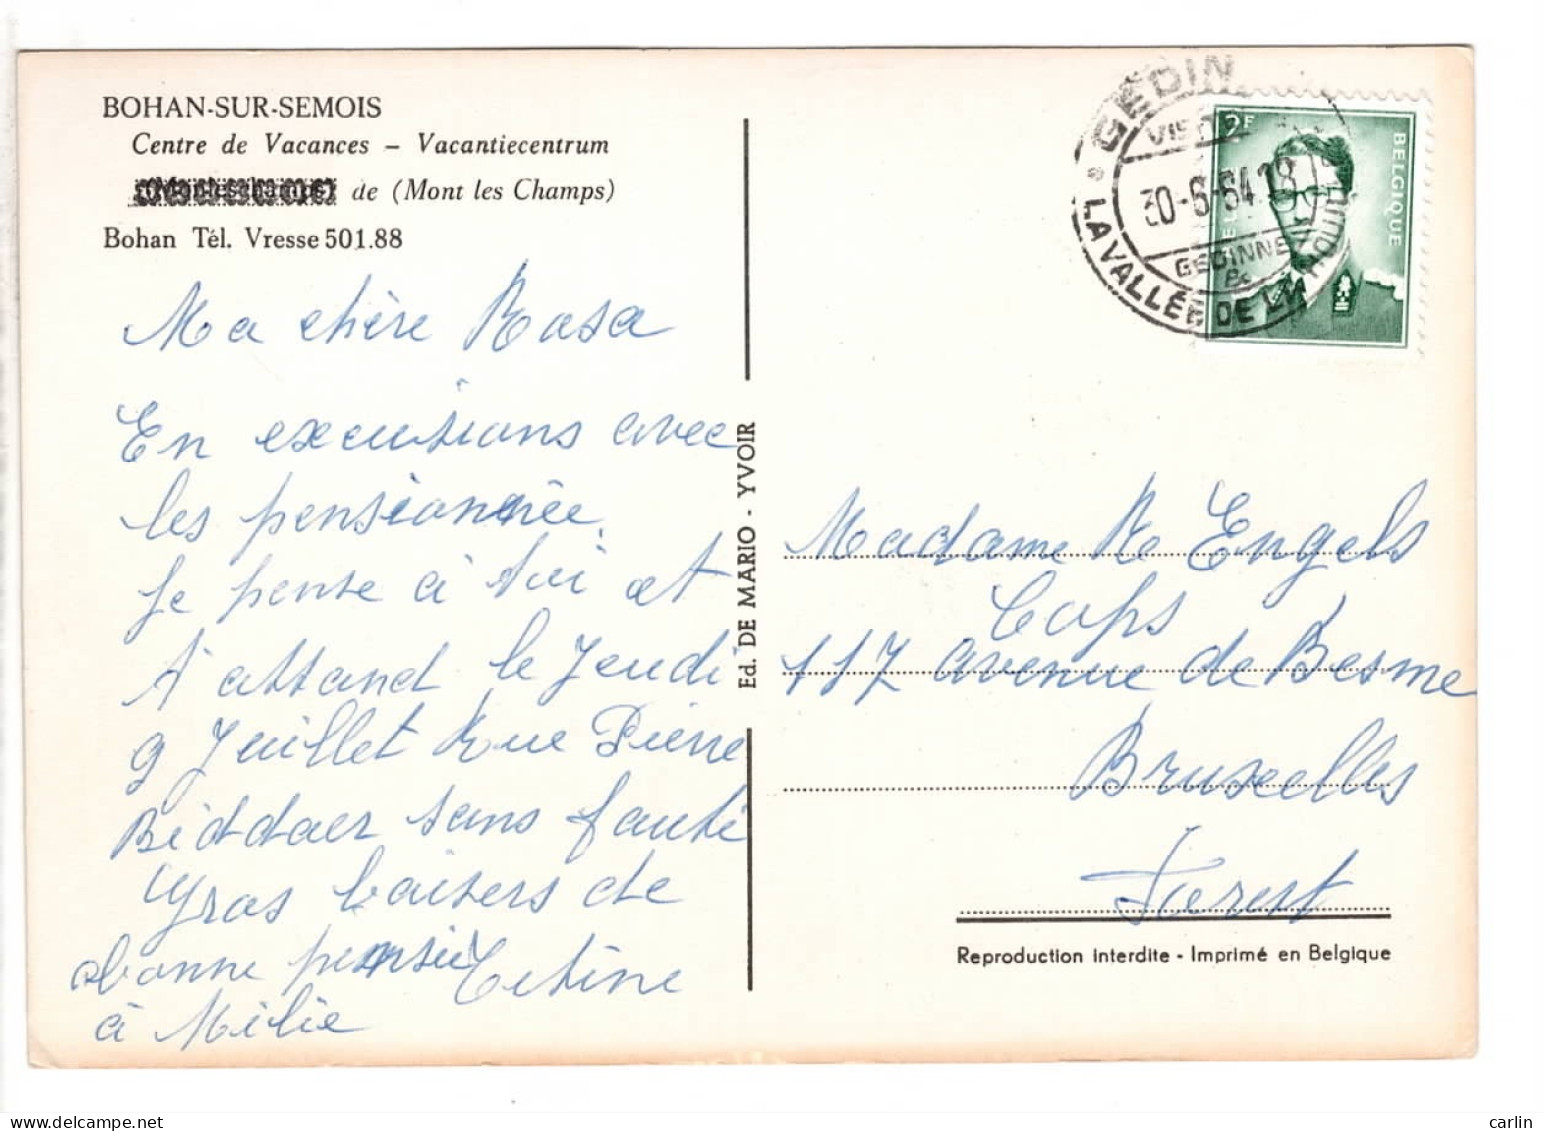 BOHAN-SUR-SEMOIS
Centre de Vacances – Vacantiecentrum
de (Mont les Champs)
Bohan Tél. Vresse 501.88
Ma chère Rosa
En excursions avec
les pensionnée.
Je pense à toi et
t'attend le Jeudi
9 Juillet Rue Pierre
Biddaer sans faute
Gros baisers de
bonne pensée Titine
à Milie
Ed. DE MARIO - YVOIR
GEDIN
30-6-64 18
GEDINNE
LA VALLÉE DE LA HOUIL
2F
BELGIQUE
Madame Re Engels
Cops
117 avenue de Besme
Bruxelles
Forest
Reproduction interdite - Imprimé en Belgique
delcampe.net
carlin